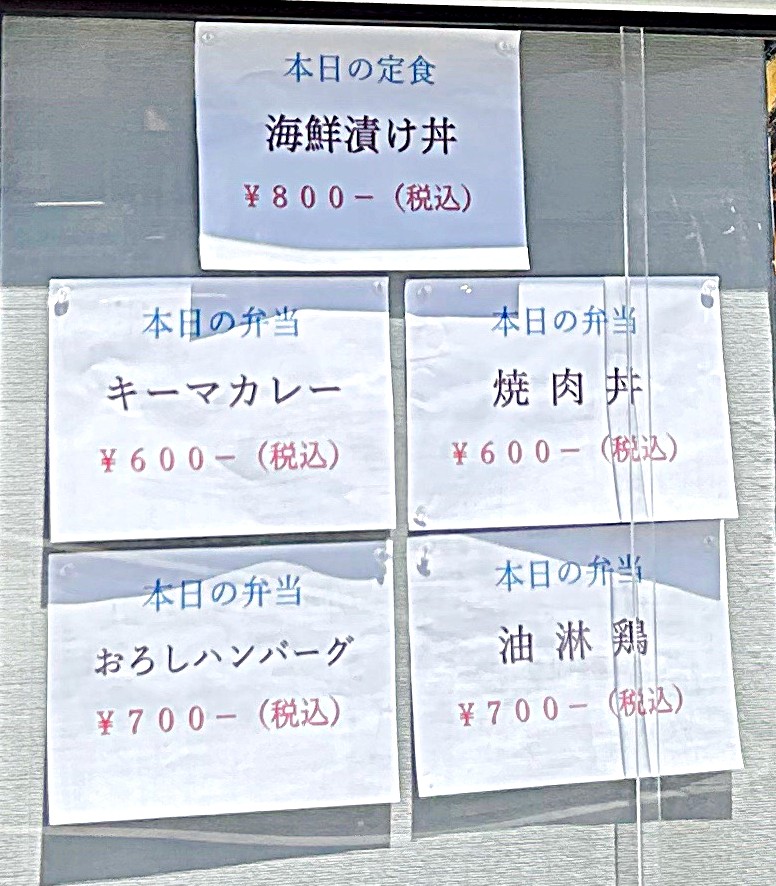 本日の定食
海鮮漬け丼
¥800-(税込)
本日の弁当
キーマカレー
¥600-(税込)
本日の弁当
焼肉丼
¥600-(税込)
本日の弁当
おろしハンバーグ
¥700-(税込)
本日の弁当
油淋鶏
¥700-(税込)